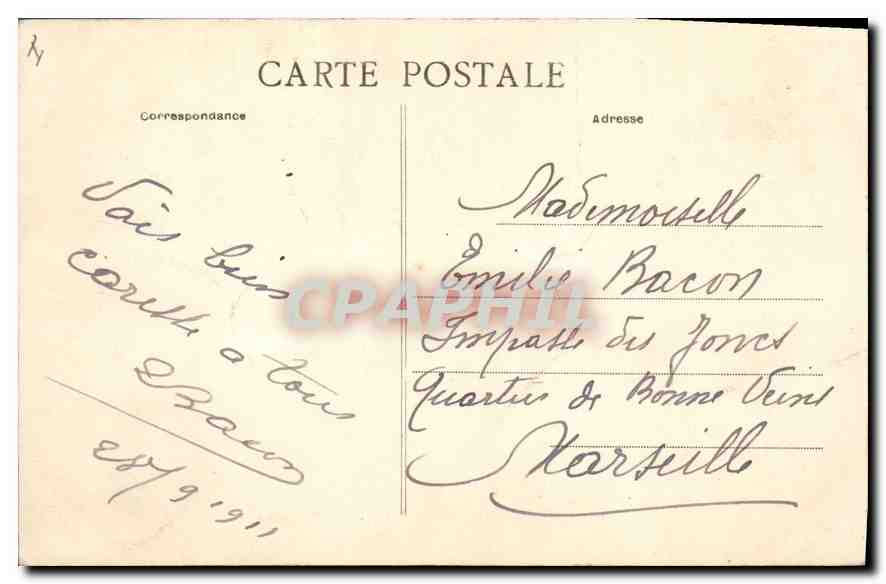 CARTE POSTALE
Correspondance
Vais bien
caresse a tous
EBacon
28/9 1911
Adresse
Mademoiselle
Emilie Bacon
Impasse des Joncs
Quartier de Bonne Veine
Marseille
CPAPHIL